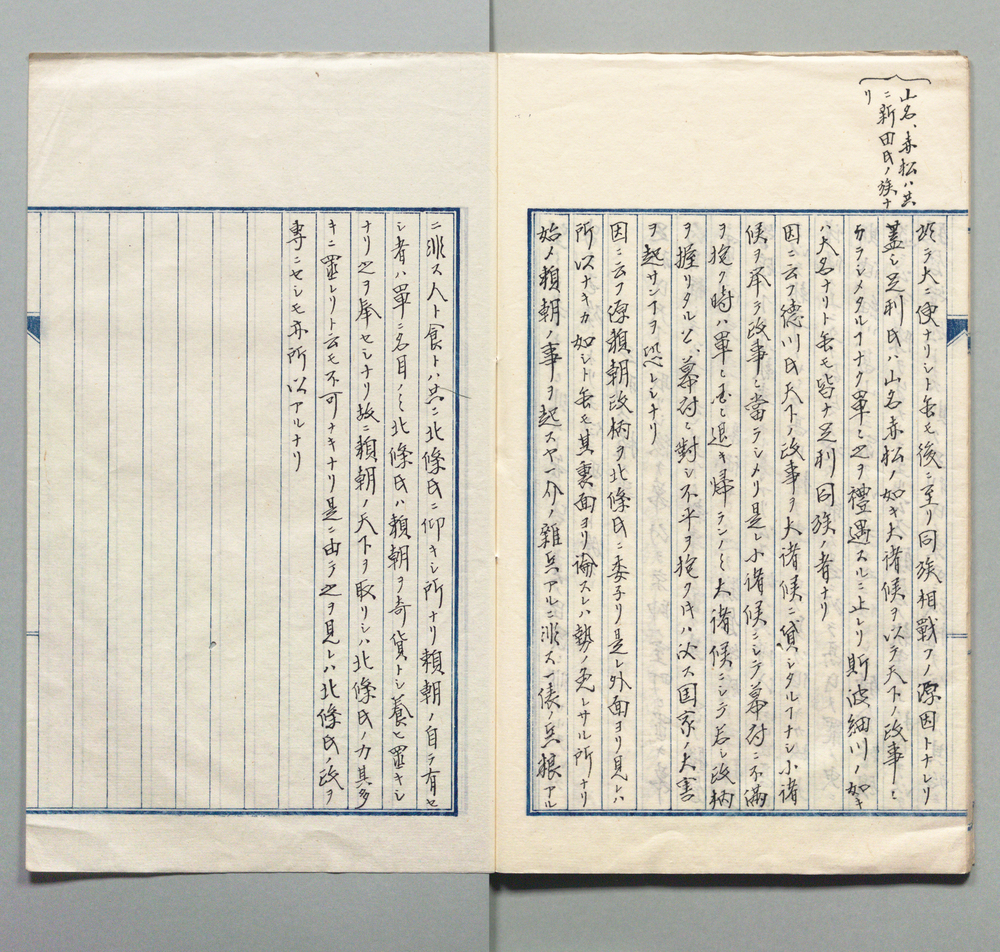 山名、赤松ハ共
ニ新田氏ノ族ナ
リ
於テ大ニ便ナリシト雖モ後ニ至リ同族相戰フノ源因トナレリ
蓋シ足利氏ハ山名赤松ノ如キ大諸候ヲ以テ天下ノ政事ニ
カラシメタルヿナク單ニ之ヲ禮遇スルニ止レリ斯波細川ノ如キ
ハ大名ナリト雖モ皆ナ足利同族ノ者ナリ
因ニ云フ德川氏天下ノ政事ヲ大諸候ニ貸シタルヿナシ小諸
候ヲ承テ政事ニ當ラシメリ是レ小諸候ニシテ幕府ニ不滿
ヲ抱ク時ハ單ニ國ニ退キ帰ランノミ大諸候ニシテ若シ政柄
ヲ握リタル𪜈、幕府ニ對シ不平ヲ抱クキハ必ス国家ノ大害
ヲ起サンヿヲ恐レシナリ
因ニ云フ源頼朝政柄ヲ北條氏ニ委子リ是レ外面ヨリ見レハ
所以ナキカ如シト雖モ其裏面ヨリ論スレハ勢ノ免レサル所ナリ
始メ頼朝ノ事ヲ起スヤ一介ノ雜兵アルニ非ス一俵ノ兵粮アル
ニ非ス人ト食トハ共ニ北條氏ニ仰キシ所ナリ頼朝ノ自ラ有セ
シ者ハ單ニ名目ノミ北條氏ハ頼朝ヲ奇貨トシ養ヒ置キシ
ナリ之ヲ奉セシナリ故ニ頼朝ノ天下ヲ取リシハ北條氏ノ力其多
キニ置レリト云モ不可ナキナリ是ニ由テ之ヲ見レハ北條氏ノ政ヲ
專ニセシモ亦所以アルナリ